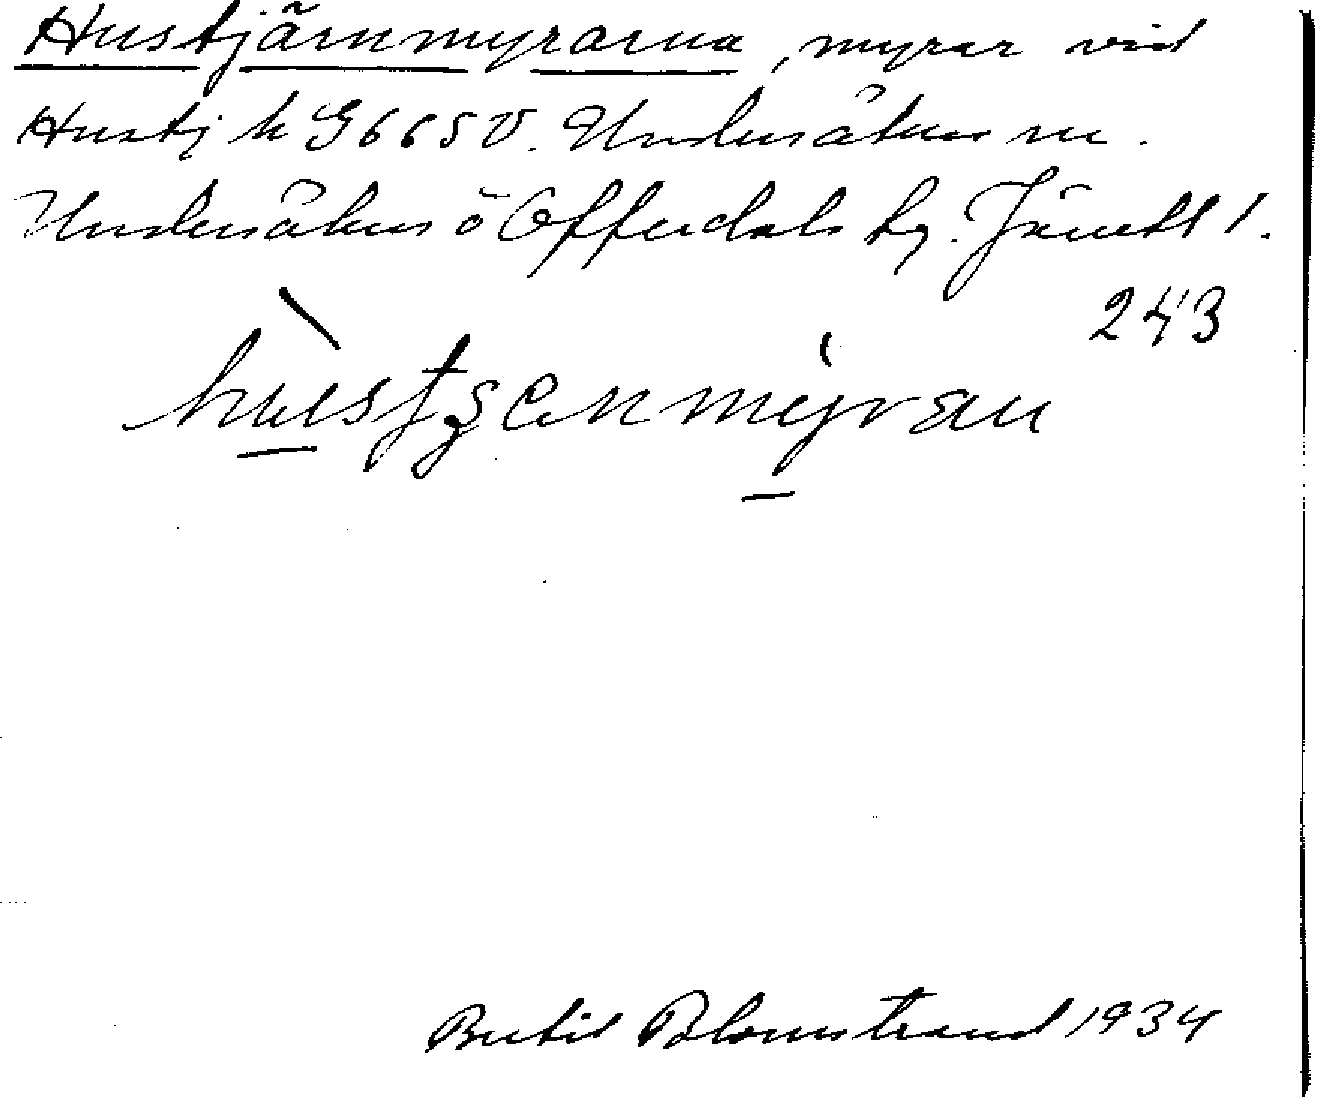 Hustjärnmyrarna, myrar vid
Hustj k G6650. Undersåkers sn.
Undersåkers o Offerdals tg. Jämtl l.
243
hustʂenmyran
Bertil Blomstrand 1934